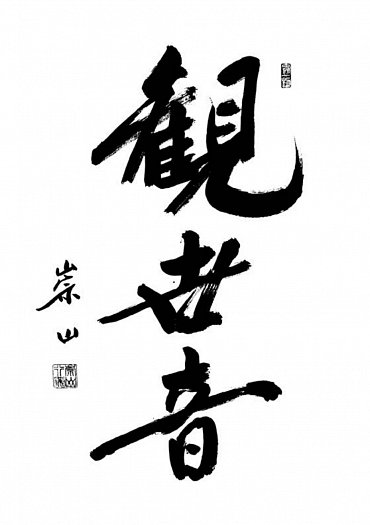 観世音
崇山